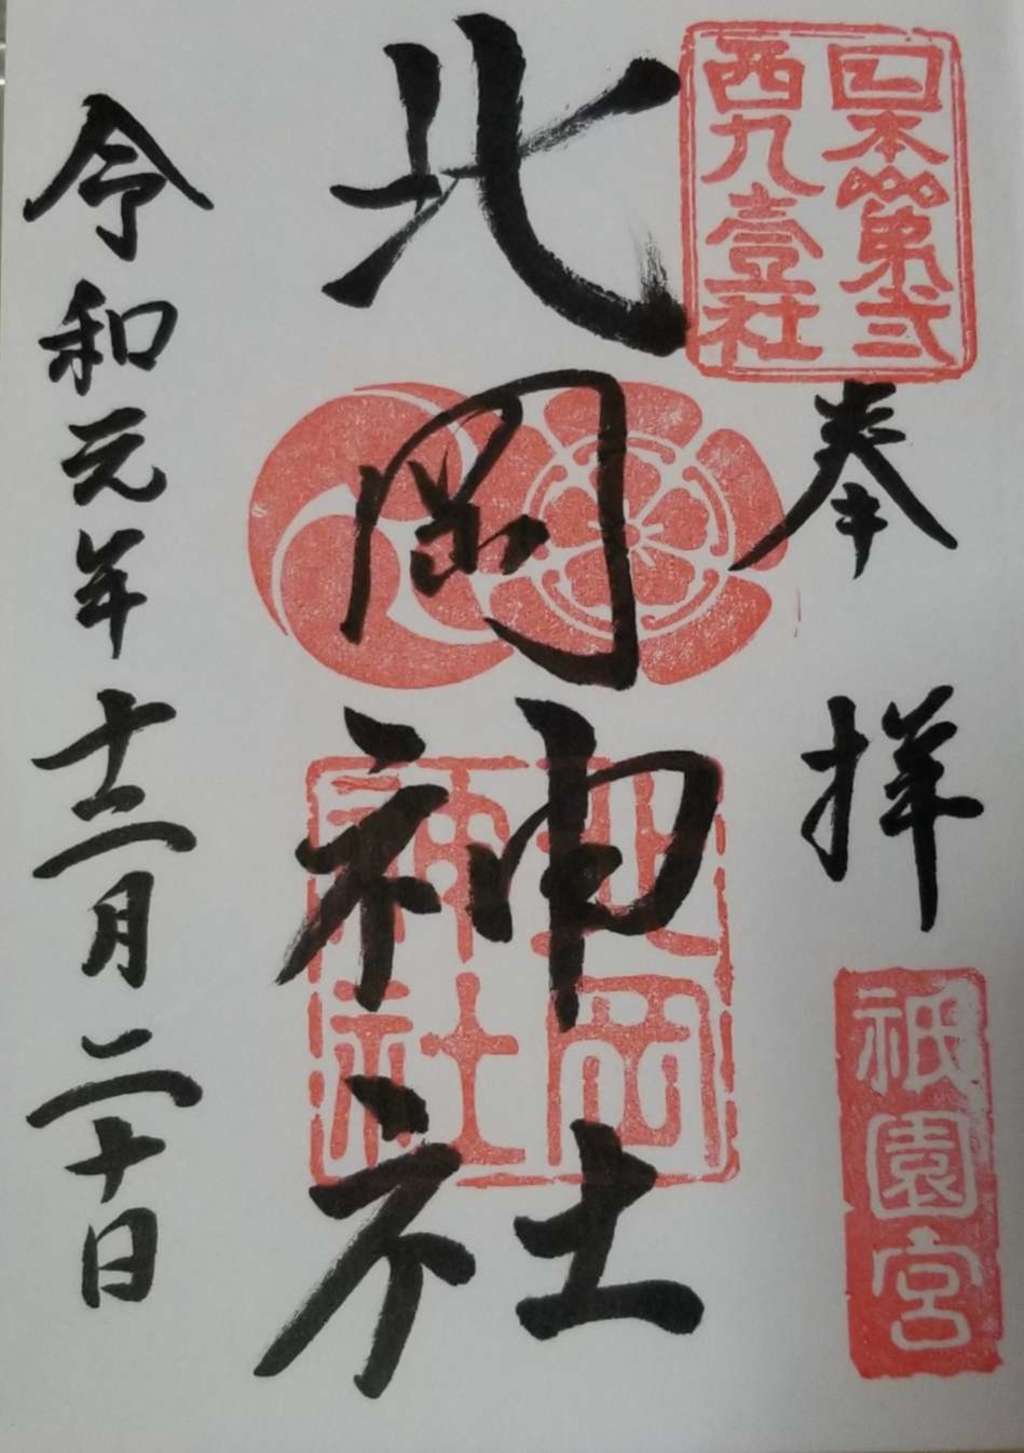 日本第弐
西九壹社
奉拝
祇園宮
北岡神社
北岡
神社
令和元年十二月二十日